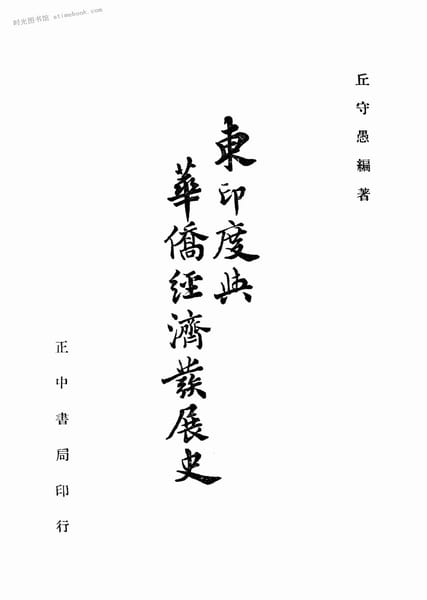 时光图书馆 stimebook.com
丘守愚編著
東印度與
華僑經濟發展史
正中書局印行